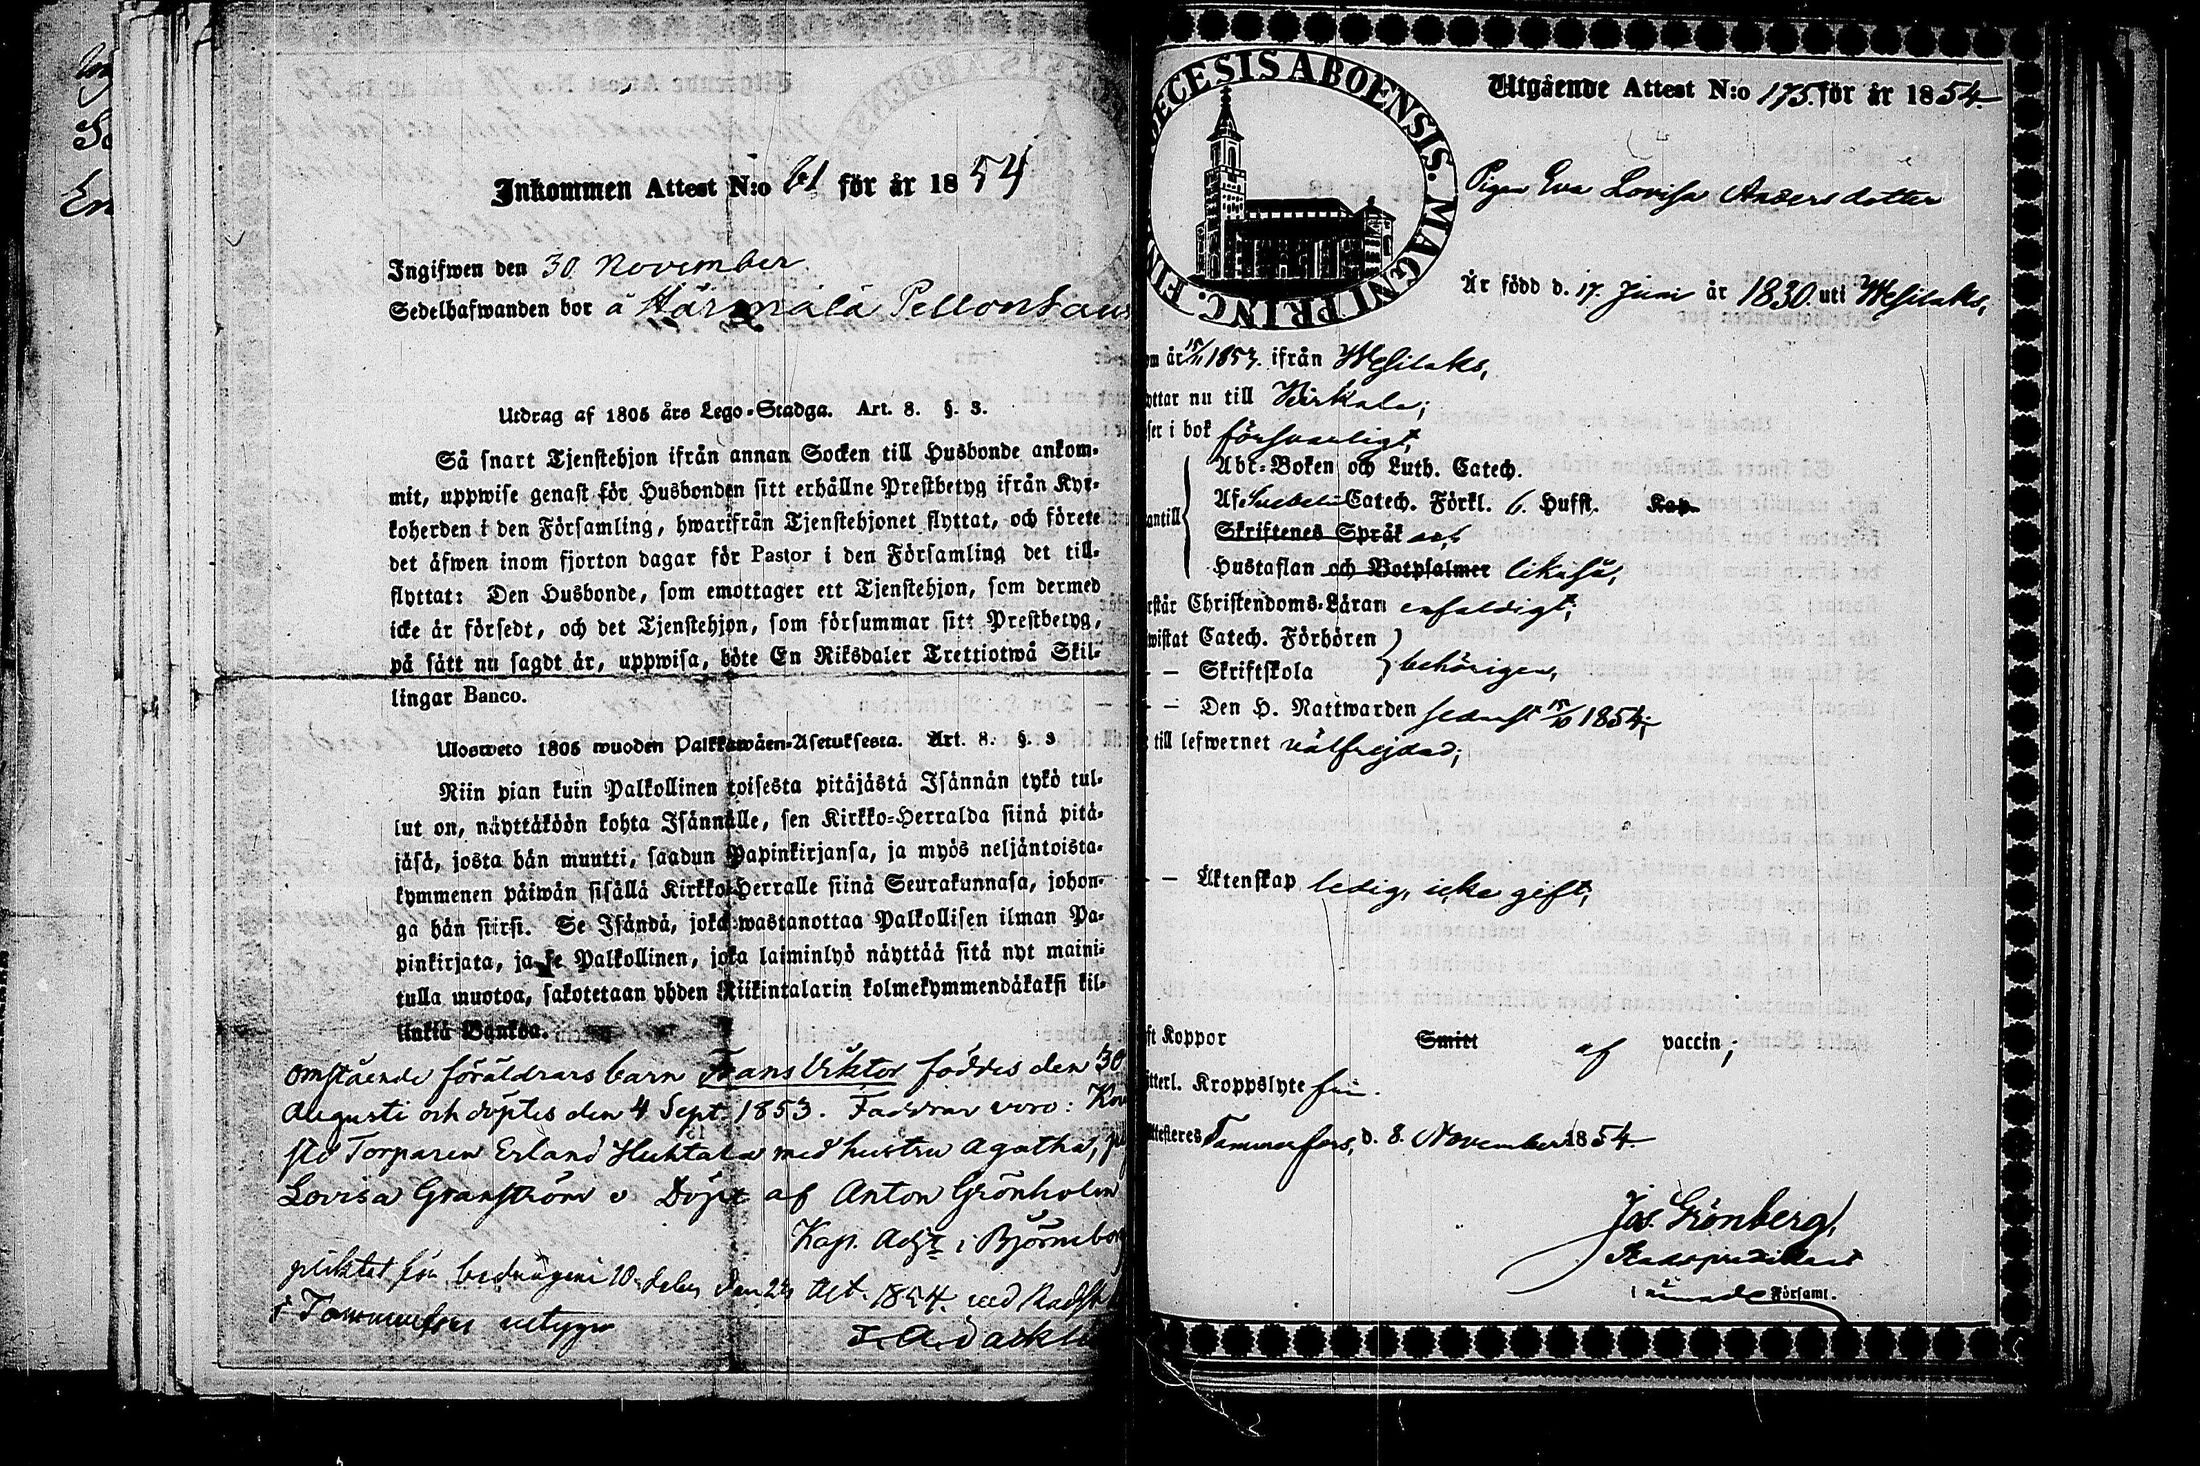 Inkommen Attest N:o 61 för år 1854
Ingifwen den 30 November
Sedelhafwanden bor å Härmälä Pellonhaus
Utdrag af 1805 års Lego-Stadga. Art. 8. §. 3.
Så snart Tjenstehjon ifrån annan Socken till Husbonde ankom-
mit, uppwise genast för Husbonden sitt erhållne Prestbetyg ifrån Kyr-
koherden i den Församling, hwarifrån Tjenstehjonet flyttat, och förete
det äfwen inom fjorton dagar för Pastor i den Församling det till-
flyttat: Den Husbonde, som emottager ett Tjenstehjon, som dermed
icke är försedt, och det Tjenstehjon, som försummar sitt Prestbetyg,
på sätt nu sagdt är, uppwisa, böte En Riksdaler Trettiotwå Skil-
lingar Banco.
Ulosweto 1805 wuoden Palkkawäen-Asetuksesta. Art. 8. §. 3
Niin pian kuin Palkollinen toisesta pitäjästä Isännän tykö tul-
lut on, näyttäköön kohta Isännälle, sen Kirkko-Herralda siinä pitä-
jäsä, josta hän muutti, saadun Papinkirjansa, ja myös neljäntoista-
kymmenen päiwän sisällä Kirkko-Herralle siinä Seurakunnasa, johon-
ga hän siirsi. Se Isändä, joka wastanottaa Palkollisen ilman Pa-
pinkirjata, ja se Palkollinen, joka laiminlyö näyttää sitä nyt maini-
tulla muotoa, sakotetaan yhden Riikintalarin kolmekymmendäkaksi kil-
linkiä Bankoa.
omstående föräldrars barn Frans Viktor föddes den 30
Augusti och döptes den 4 Sept. 1853. Faddrar voro:
Torparen Erland Huhtala med hustru Agatha,
Lovisa Granström Döpt af Anton Grönholm
Kap. Adjt i Björneborg
pliktet för den 24 Okt. 1854.
i Tammerfors betygar
DIECESIS ABOENSIS. MAGNI PRINC. FIN
Utgående Attest N:o 175. för år 1854.
Pigan Eva Lovisa Andersdotter
Är född d. 17. Juni år 1830. uti Wesilaks,
om år 15/11 1853. ifrån Wesilaks,
yttar nu till Birkala;
ser i bok försvarligt,
Abc-Boken och Luth. Catech.
Af Svebelii Catech. Förkl. 6. Hufst. Kap.
antill Skriftenes Språk
Hustaflan och Botpsalmer likaså,
rstår Christendoms-Läran enfaldigt;
wistat Catech. Förhören
— — Skriftskola behörigen,
— — Den H. Nattwarden sednast 15/10 1854;
till lefwernet välfrejdad;
— — Äktenskap ledig, icke gift;
ft Koppor Smitt af vaccin;
tterl. Kroppslyte fri.
ttesteras Tammerfors, d. 8. November 1854.
Jos. Grönberg,
Stadspredikant
i ämnade Församl.